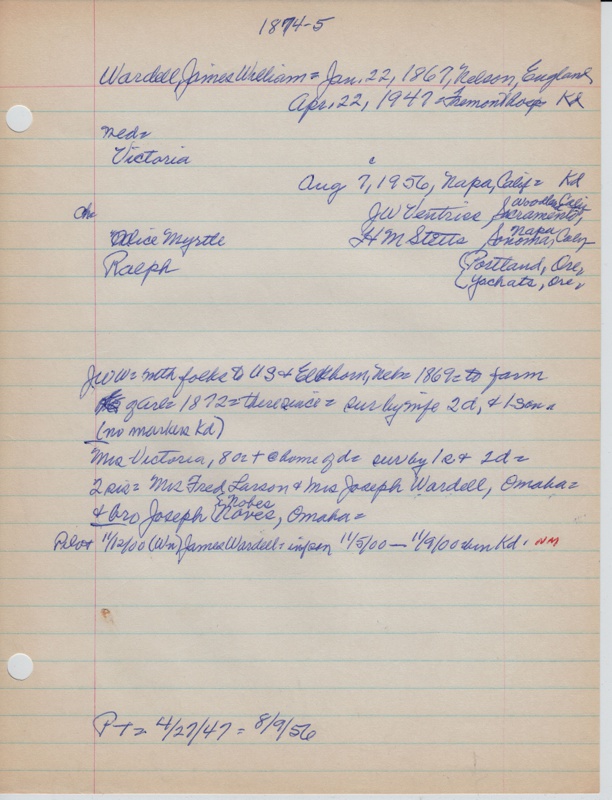 1874-5
Wardell, James William = Jan. 22, 1867, Nelson, England
Apr. 22, 1947 = Fremont Hosp Kd
Med =
Victoria
Aug 7, 1956, Napa, Calif = Kd
Ch
Alice Myrtle JW Ventriss, Sacramento, Calif
H M Stetts Napa Sonoma, Calif
Ralph Portland, Ore,
Yachats, Ore,
JWW = with folks to US & Elkhorn, Neb = 1869 = to farm
1872 = there since = sur by wife 2d, & 1 son =
(no markers Kd)
Mrs Victoria, 80 + @ home of d = sur by 1s & 2d =
2 sis = Mrs Fred Larson & Mrs Joseph Wardell, Omaha =
& bro Joseph Noves, Nobes Omaha =
Pilot 11/12/00 (Wn) James Wardell = inf son 11/5/00 — 11/9/00 = bur Kd. NM
PT = 4/27/47 = 8/9/56